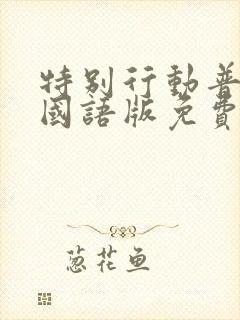 特别行動普
國語版免費
葱花鱼